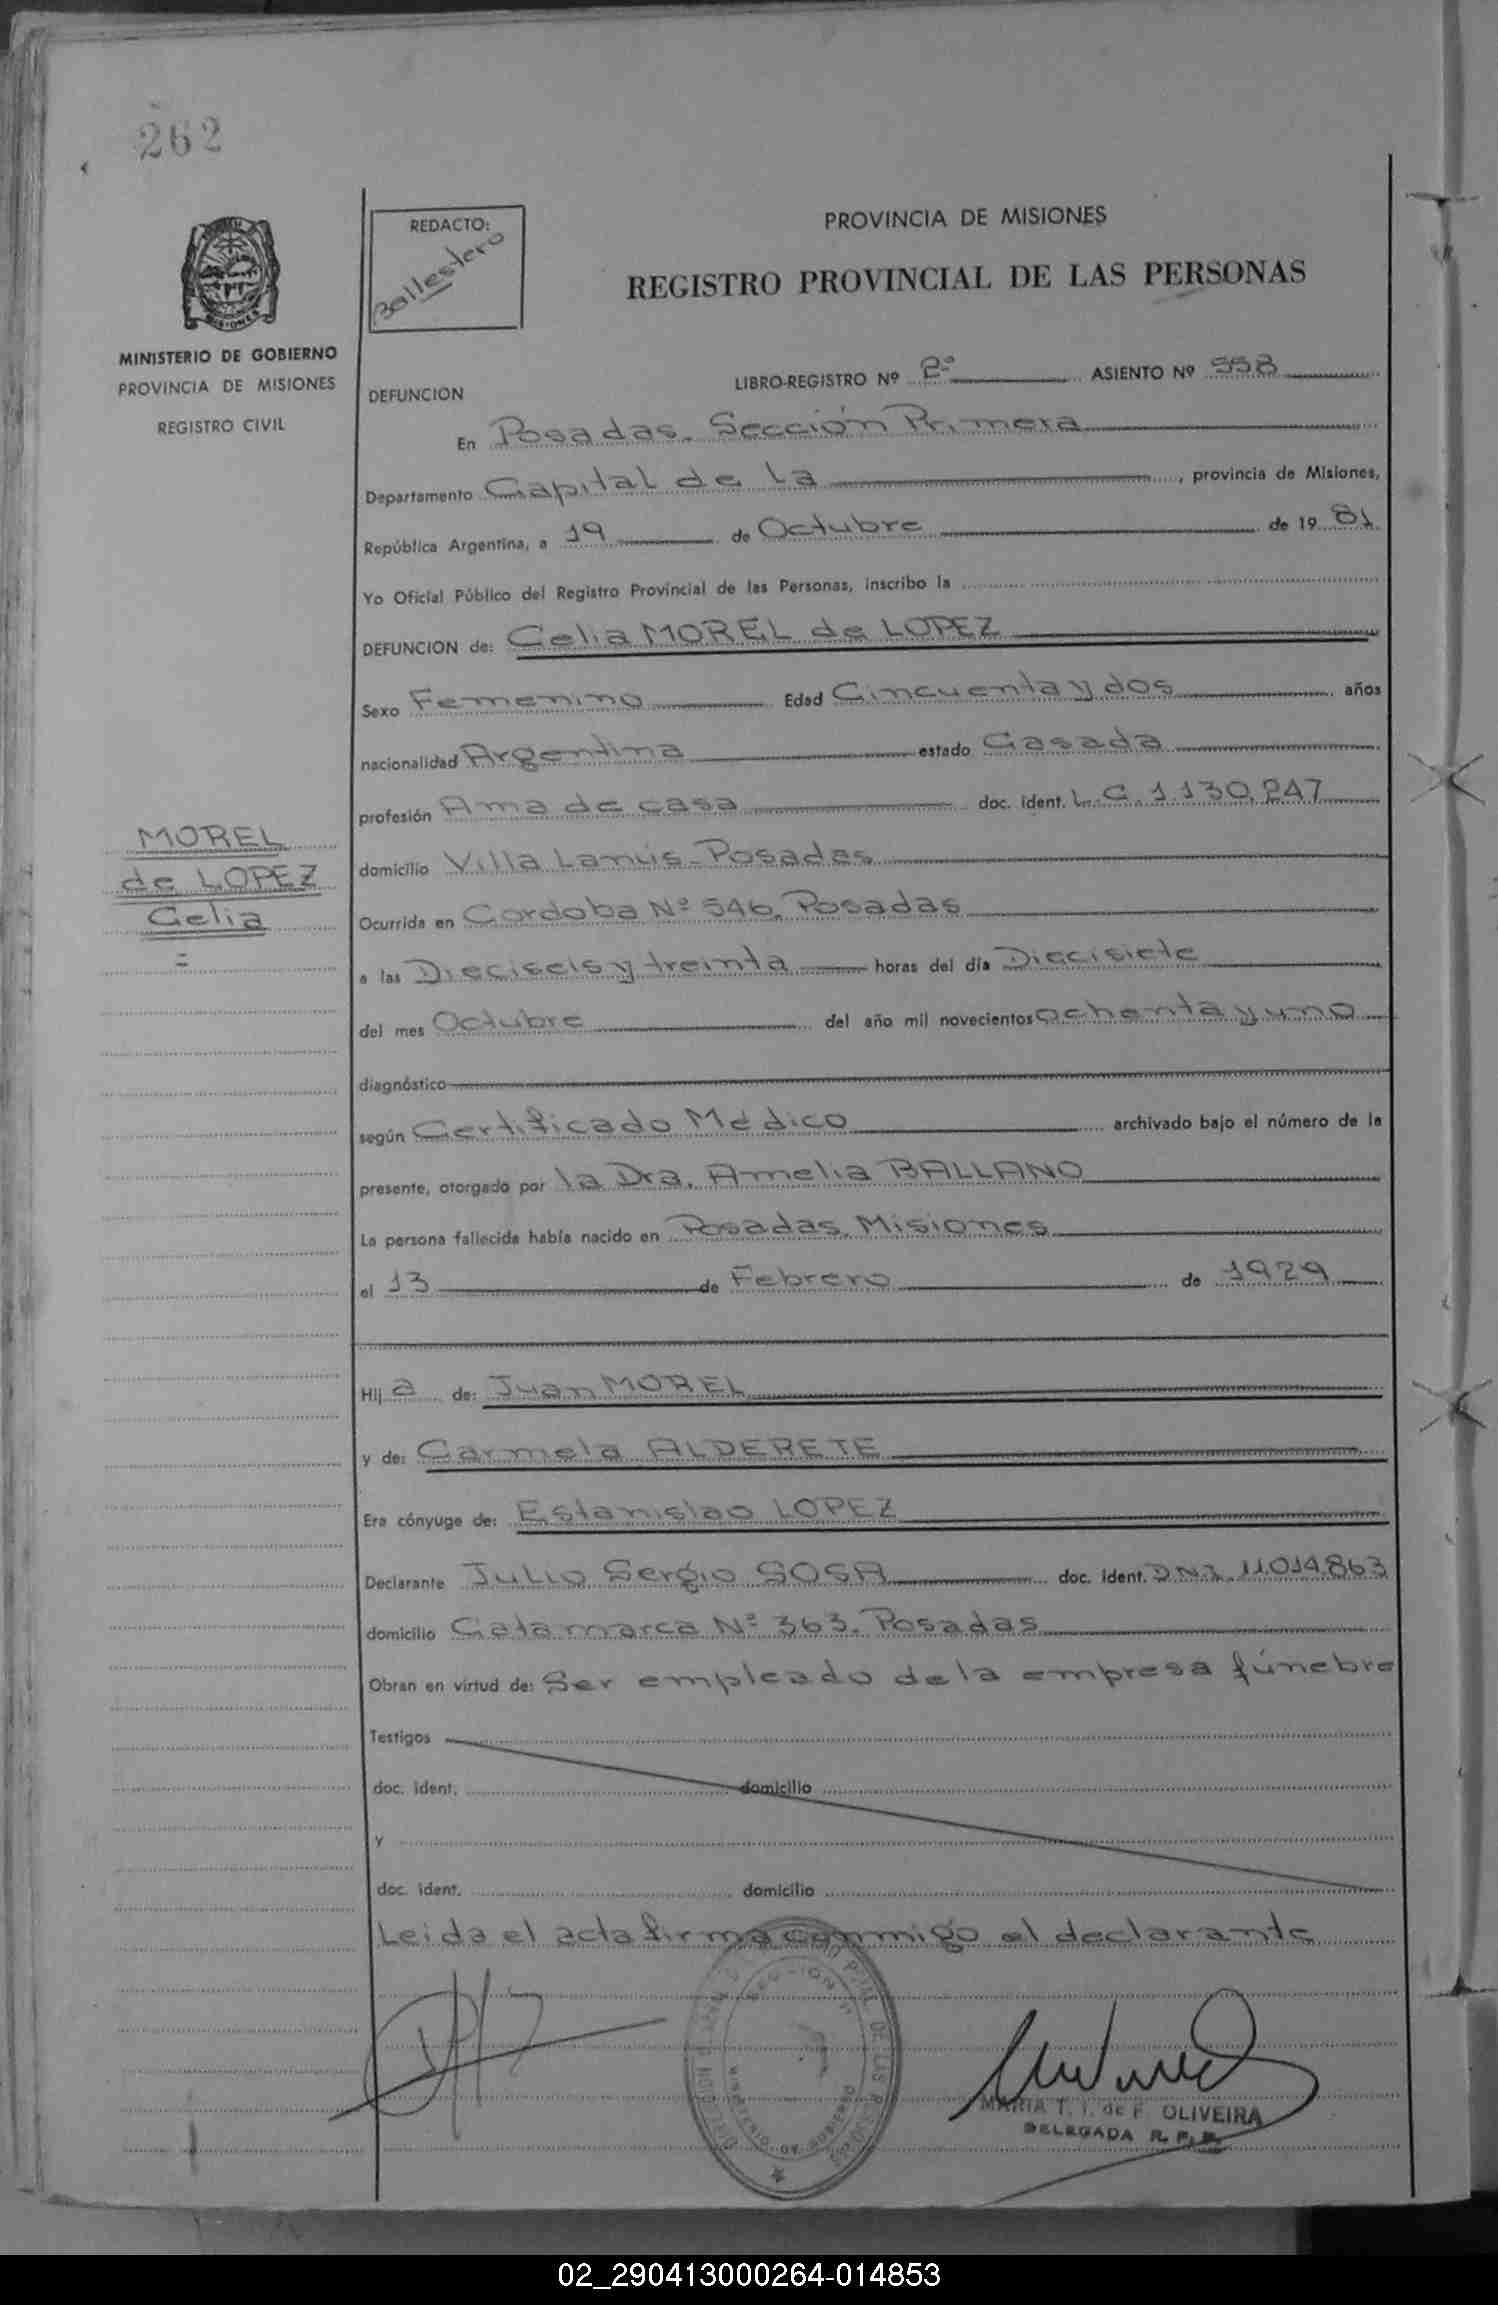 262
REDACTO:
Ballestero
PROVINCIA DE MISIONES
REGISTRO PROVINCIAL DE LAS PERSONAS
MISIONES
MINISTERIO DE GOBIERNO
PROVINCIA DE MISIONES
REGISTRO CIVIL
DEFUNCION
LIBRO-REGISTRO Nº 2º ASIENTO Nº 558
En Posadas. Sección Primera
Departamento Capital de la , provincia de Misiones,
República Argentina, a 19 de Octubre de 19 81
Yo Oficial Público del Registro Provincial de las Personas, inscribo la
DEFUNCION de: Celia MOREL de LOPEZ
Sexo Femenino Edad Cincuenta y dos años
nacionalidad Argentina estado Casada
profesión Ama de casa doc. ident. L.C. 1.130.247
MOREL
de LOPEZ
Celia
domicilio Villa Lanús-Posadas
Ocurrida en Cordoba Nº 546, Posadas
a las Dieciseis y treinta horas del día Diecisiete
del mes Octubre del año mil novecientos ochenta y uno
diagnóstico
según Certificado Médico archivado bajo el número de la
presente, otorgado por la Dra. Amelia BALLANO
La persona fallecida había nacido en Posadas, Misiones
el 13 de Febrero de 1929
Hij a de: Juan MOREL
y de: Carmela ALDERETE
Era cónyuge de: Estanislao LOPEZ
Declarante Julio Sergio SOSA doc. ident. D.N.I. 11.014.863
domicilio Catamarca Nº 363. Posadas
Obran en virtud de: Ser empleado de la empresa fúnebre
Testigos
doc. ident. domicilio
y
doc. ident. domicilio
Leida el acta firma conmigo el declarante
MARIA T. I. de F. OLIVEIRA
DELEGADA R. P. P.
02_290413000264-014853